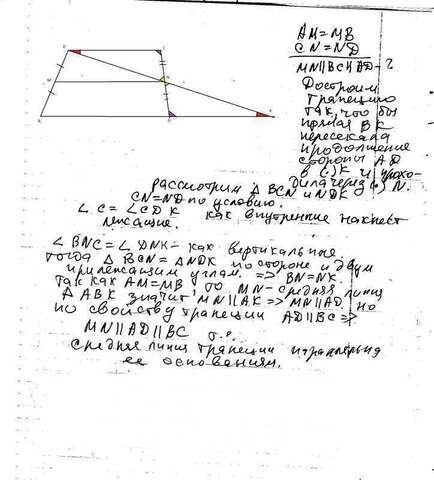 AM=MB
CN=ND
MN||BC||AD-?
Достроим
трапецию
так, что бы
прямая BK
пересекала
продолжение
стороны AD
в (.) K и прохо-
дила через (.) N.
рассмотрим △ BCN и NDK
CN=ND по условию.
∠C = ∠CDK как внутренние накрест
лежащие.
∠BNC = ∠DNK - как вертикальные
тогда △ BCN = △NDK по стороне и двум
прилежащим углам. => BN=NK.
Так как AM=MB то MN - средняя линия
△ ABK значит MN||AK => MN||AD. но
по свойству трапеции AD||BC =>
MN||AD||BC т.е.
средняя линия трапеции
ее основаниям.